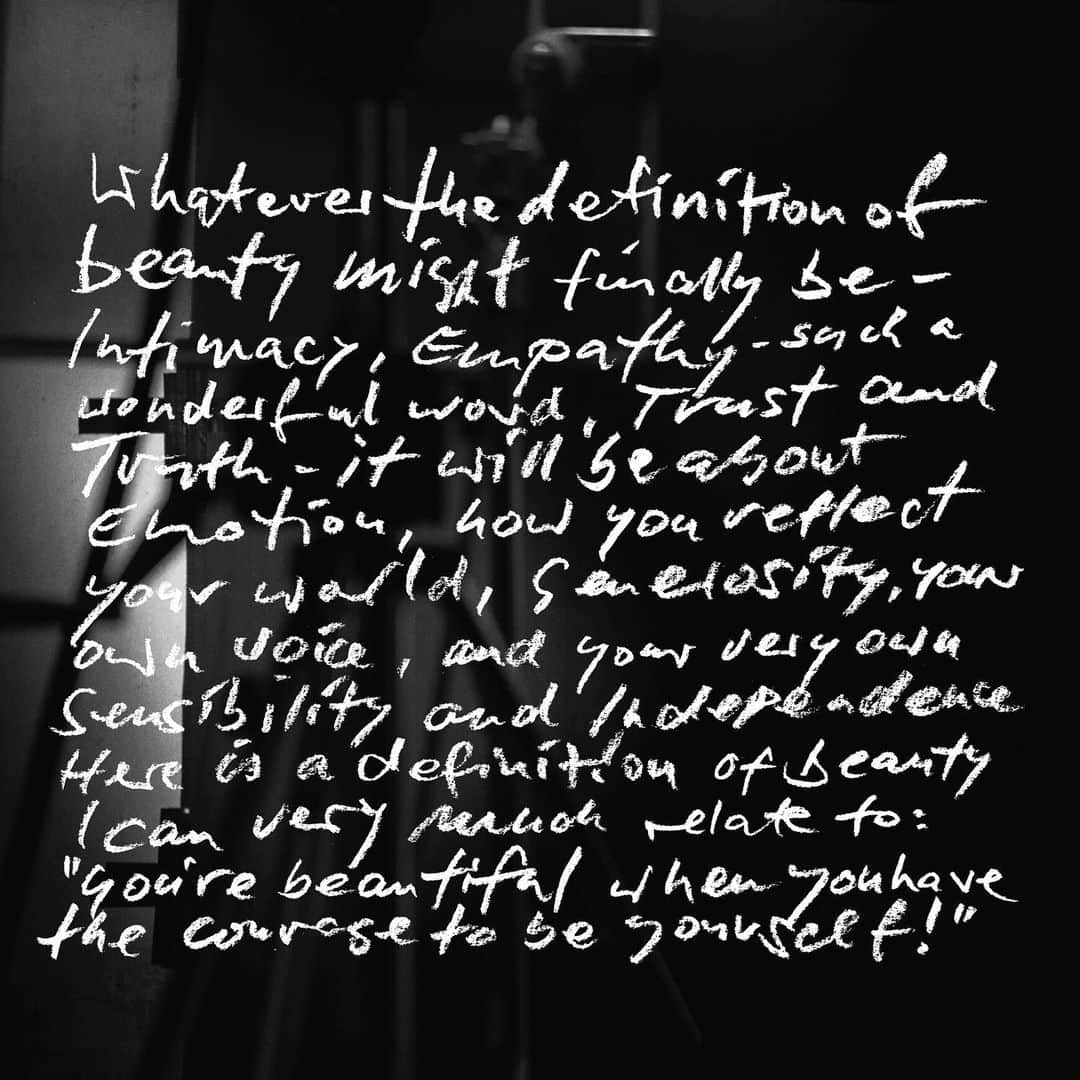 Whatever the definition of
beauty might finally be –
Intimacy, Empathy – such a
wonderful word, Trust and
Truth – it will be about
Emotion, how you reflect
your world, Generosity, your
own voice, and your very own
Sensibility and Independence
Here is a definition of beauty
I can very much relate to:
"you're beautiful when you have
the courage to be yourself!"